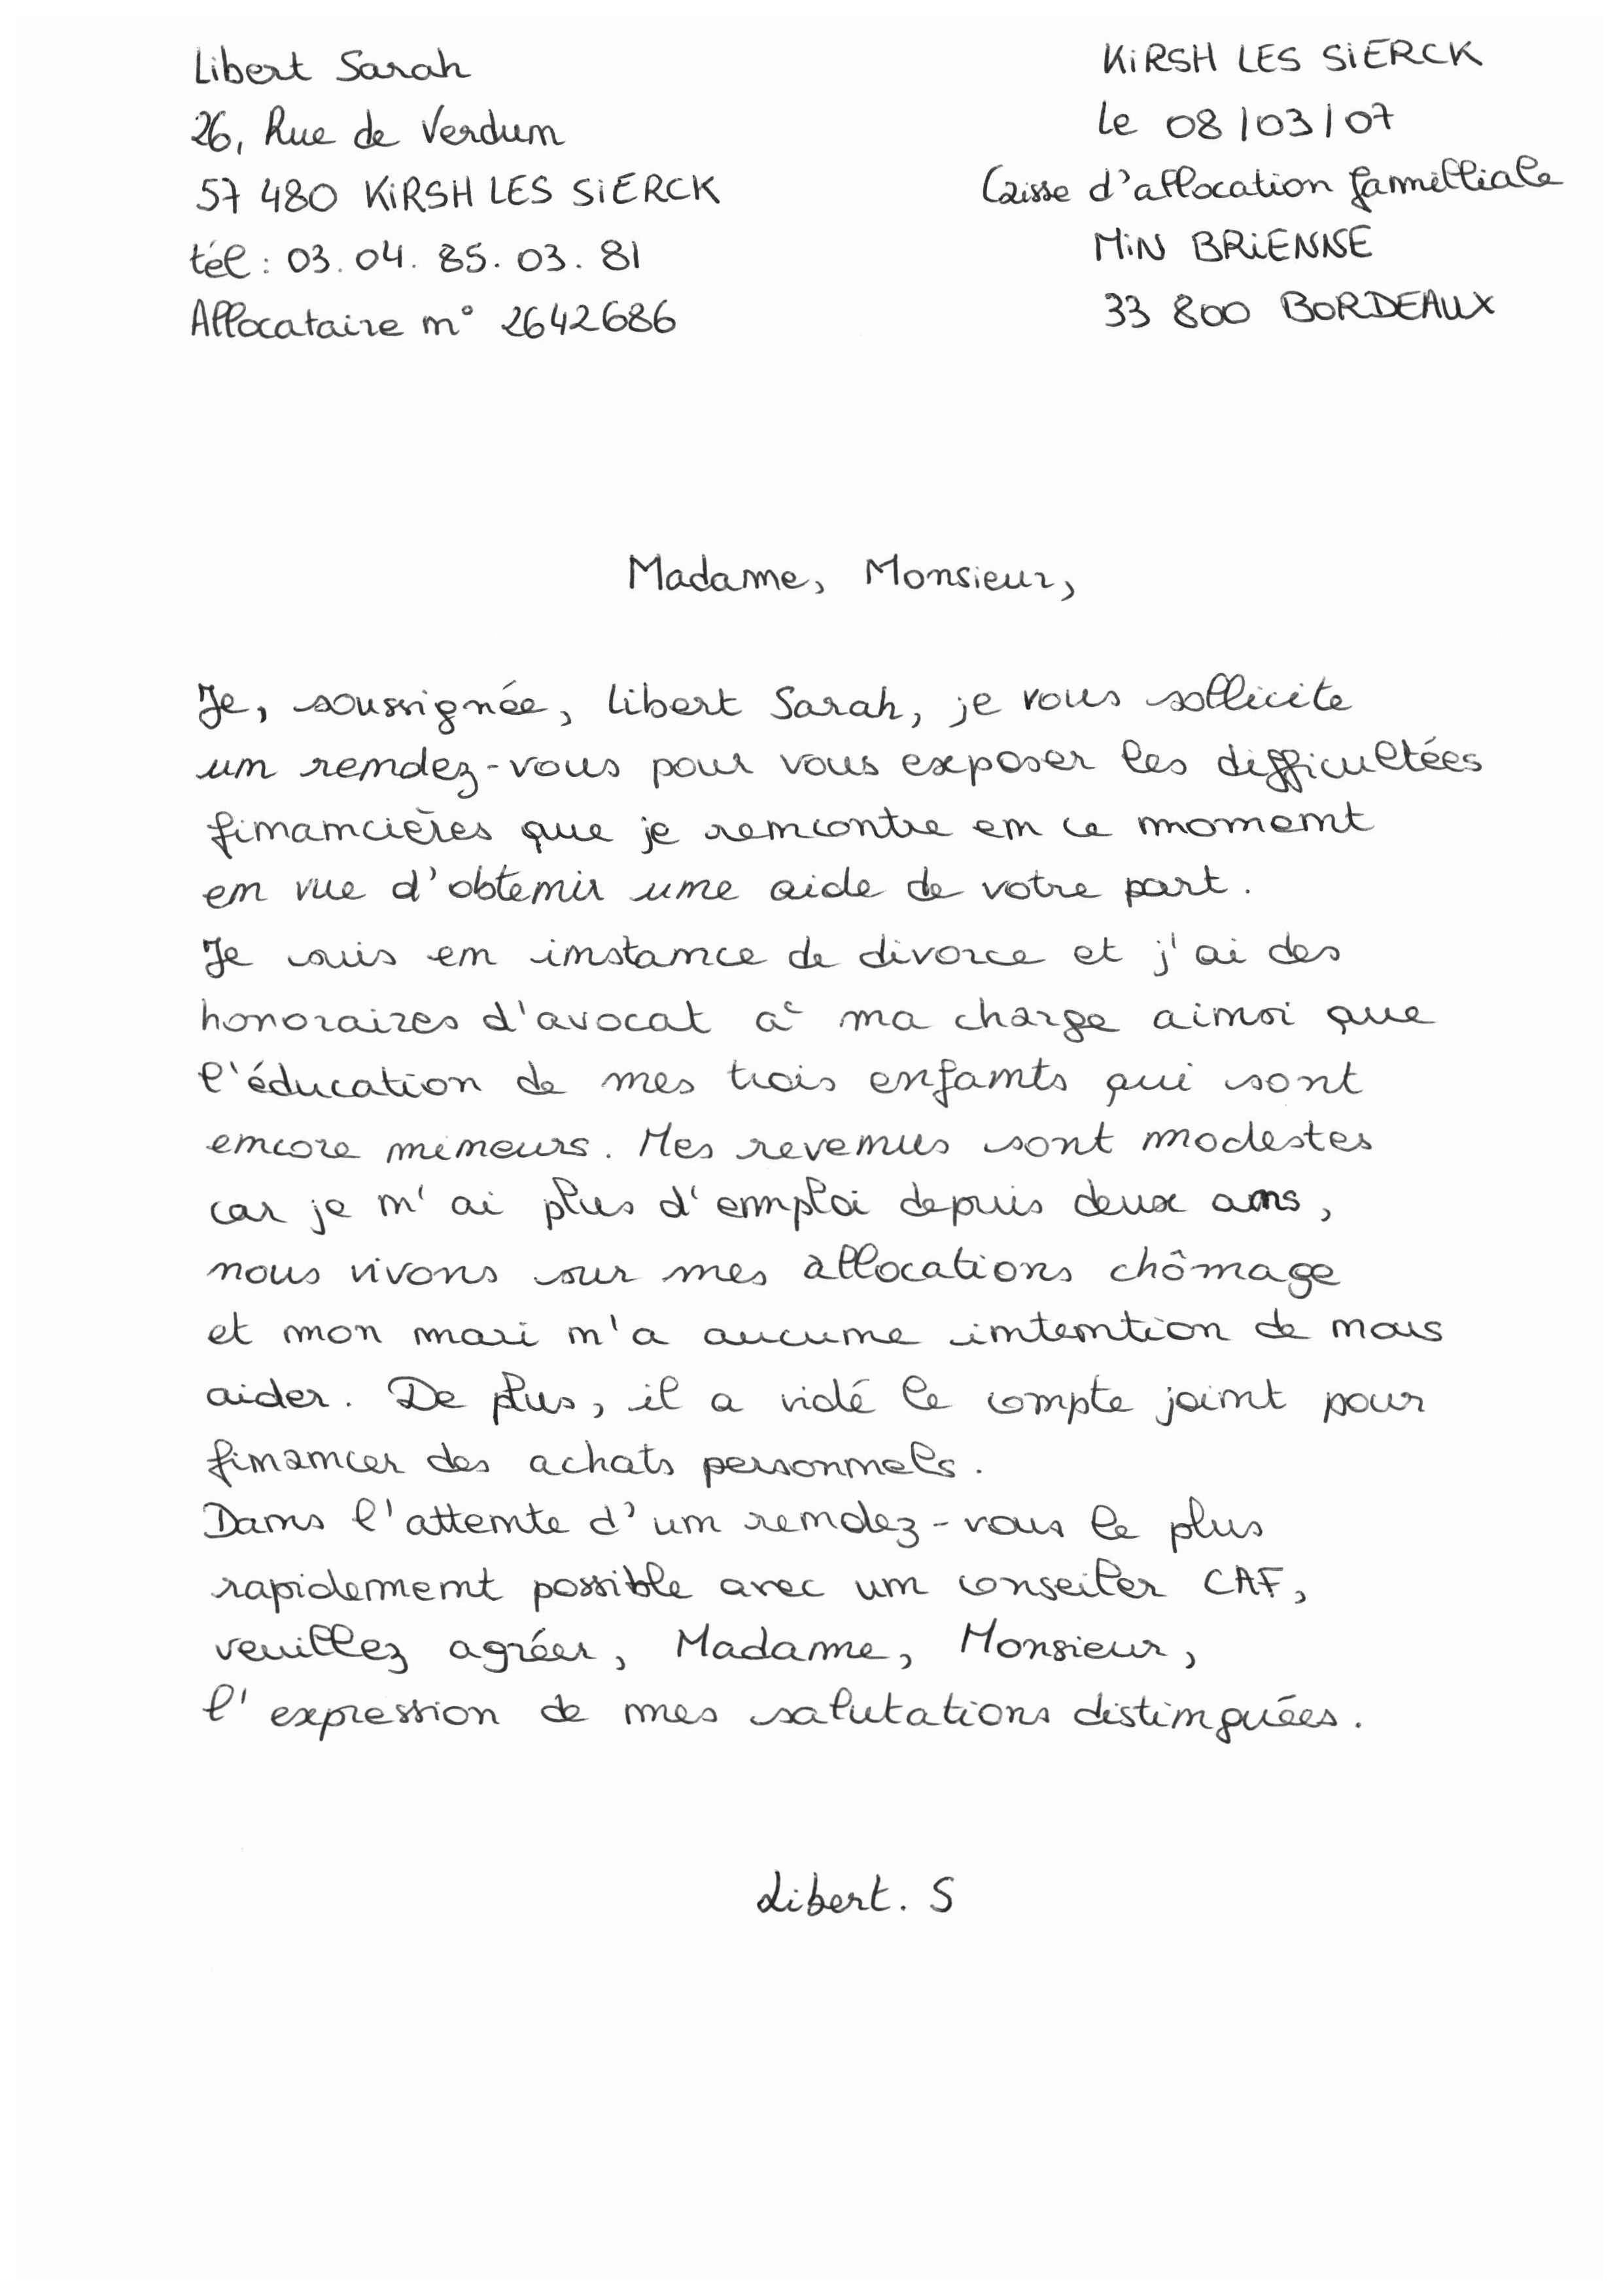 Libert Sarah
26, Rue de Verdun
57 480 KIRSH LES SIERCK
tél : 03. 04. 85. 03. 81
Allocataire n° 2642686
KIRSH LES SIERCK
le 08/03/07
Caisse d'allocation familliale
MIN BRIENNE
33 800 BORDEAUX
Madame, Monsieur,
Je, soussignée, Libert Sarah, je vous sollicite
un rendez-vous pour vous exposer les difficultées
financières que je rencontre en ce moment
en vue d'obtenir une aide de votre part.
Je suis en instance de divorce et j'ai des
honoraires d'avocat à ma charge ainsi que
l'éducation de mes trois enfants qui sont
encore mineurs. Mes revenus sont modestes
car je n'ai plus d'emploi depuis deux ans,
nous vivons sur mes allocations chômage
et mon mari n'a aucune intention de nous
aider. De plus, il a vidé le compte joint pour
financer des achats personnels.
Dans l'attente d'un rendez-vous le plus
rapidement possible avec un conseiler CAF,
veuillez agréer, Madame, Monsieur,
l'expression de mes salutations distinguées.
Libert. S